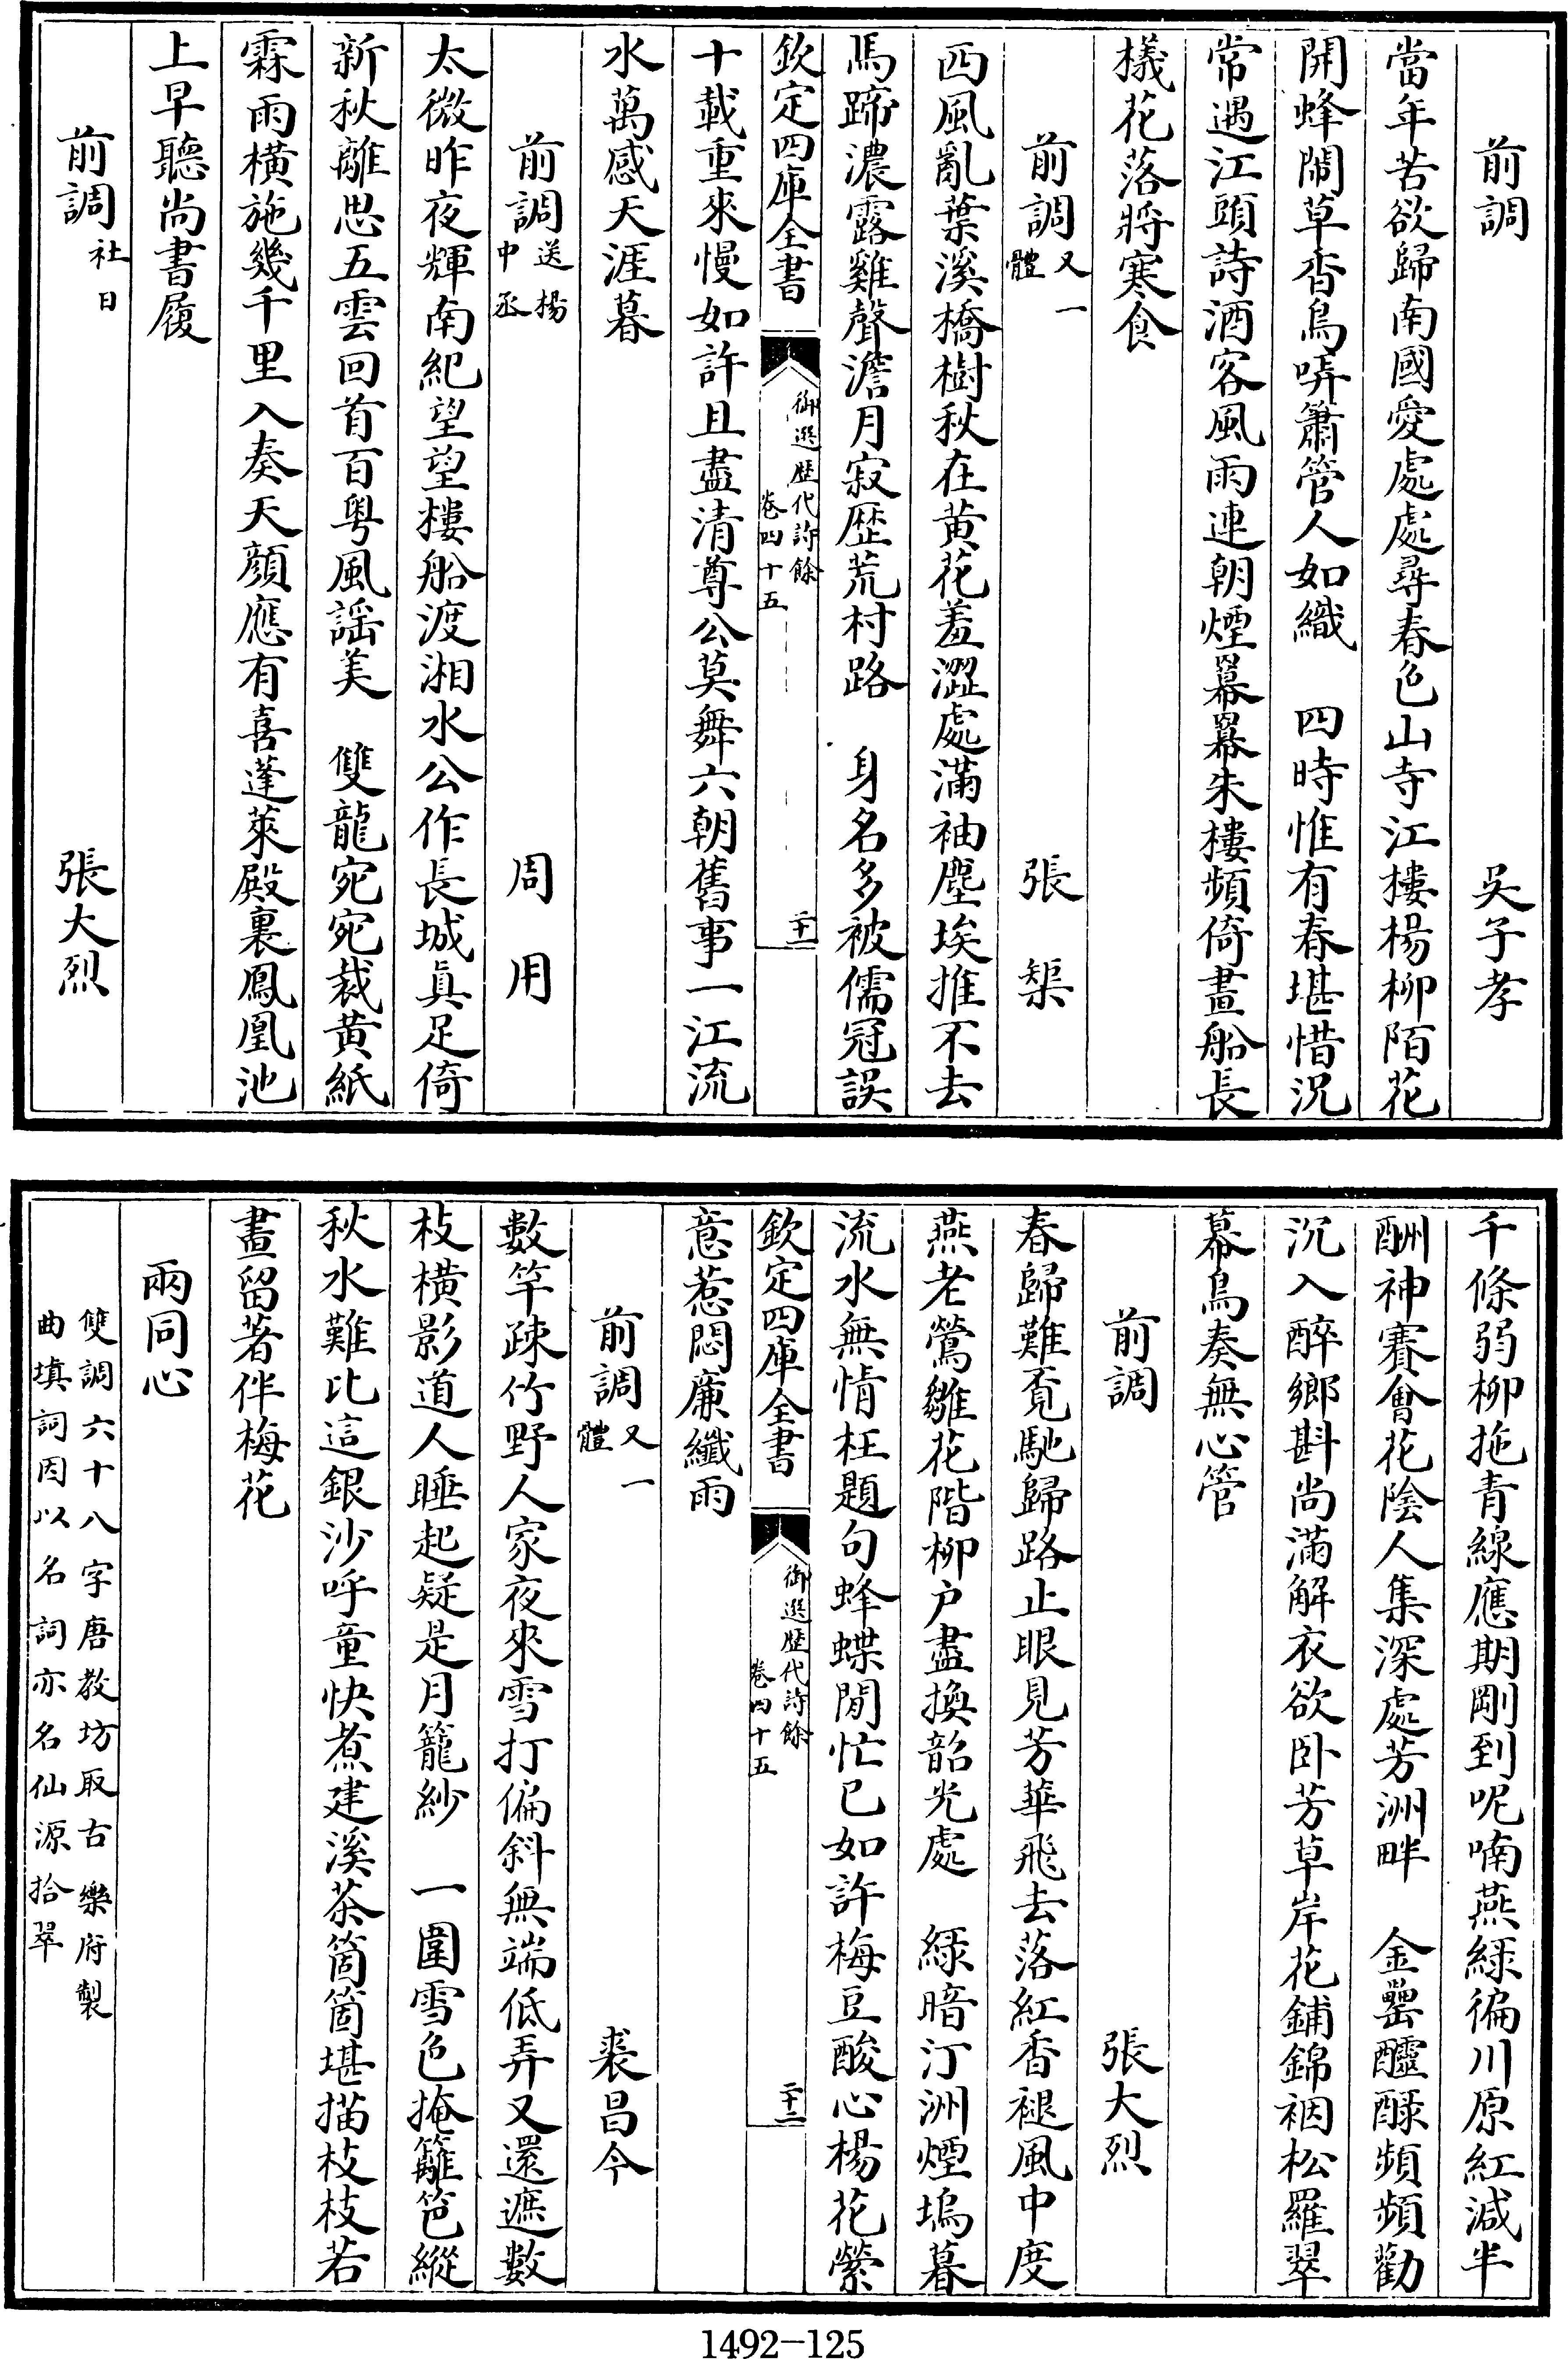 前調　吳子孝
當年苦欲歸南國愛處處尋春色山寺江樓楊柳陌花
開蜂鬧草香鳥哢簫管人如織　四時惟有春堪惜況
常遇江頭詩酒客風雨連朝煙羃羃朱樓頻倚畫船長
檥花落將寒食
前調又一體　張　榘
西風亂葉溪橋樹秋在黃花羞澀處滿袖塵埃推不去
馬蹄濃露雞聲澹月寂歴荒村路　身名多被儒冠誤
欽定四庫全書　御選歴代詩餘　卷四十五　二十一
十載重來慢如許且盡清尊公莫舞六朝舊事一江流
水萬感天涯暮
前調送楊中丞　周　用
太微昨夜輝南紀望望樓船渡湘水公作長城眞足倚
新秋離思五雲回首百粵風謠美　雙龍宛宛裁黃紙
霖雨橫施幾千里入奏天顏應有喜蓬萊殿裏鳳凰池
上早聽尚書履
前調社日　張大烈
千條弱柳拖青線應期剛到呢喃燕綠徧川原紅減半
酬神賽會花陰人集深處芳洲畔　金罍醽醁頻頻勸
沉入醉鄉斟尚滿解衣欲卧芳草岸花鋪錦裀松羅翠
幕鳥奏無心管
前調　張大烈
春歸難覔馳歸路止眼見芳華飛去落紅香褪風中度
燕老鶯雛花階柳户盡換韶光處　綠暗汀洲煙塢暮
流水無情枉題句蜂蝶閒忙已如許梅豆酸心楊花縈
欽定四庫全書　御選歴代詩餘　卷四十五　二十二
意惹悶廉纖雨
前調又一體　裘昌今
數竿疎竹野人家夜來雪打偏斜無端低弄又還遮數
枝橫影道人睡起疑是月籠紗　一圍雪色掩籬笆縱
秋水難比這銀沙呼童快煮建溪茶箇箇堪描枝枝若
畫留著伴梅花
兩同心
雙調六十八字唐教坊取古樂府製
曲填詞因以名詞亦名仙源拾翠
1492-125